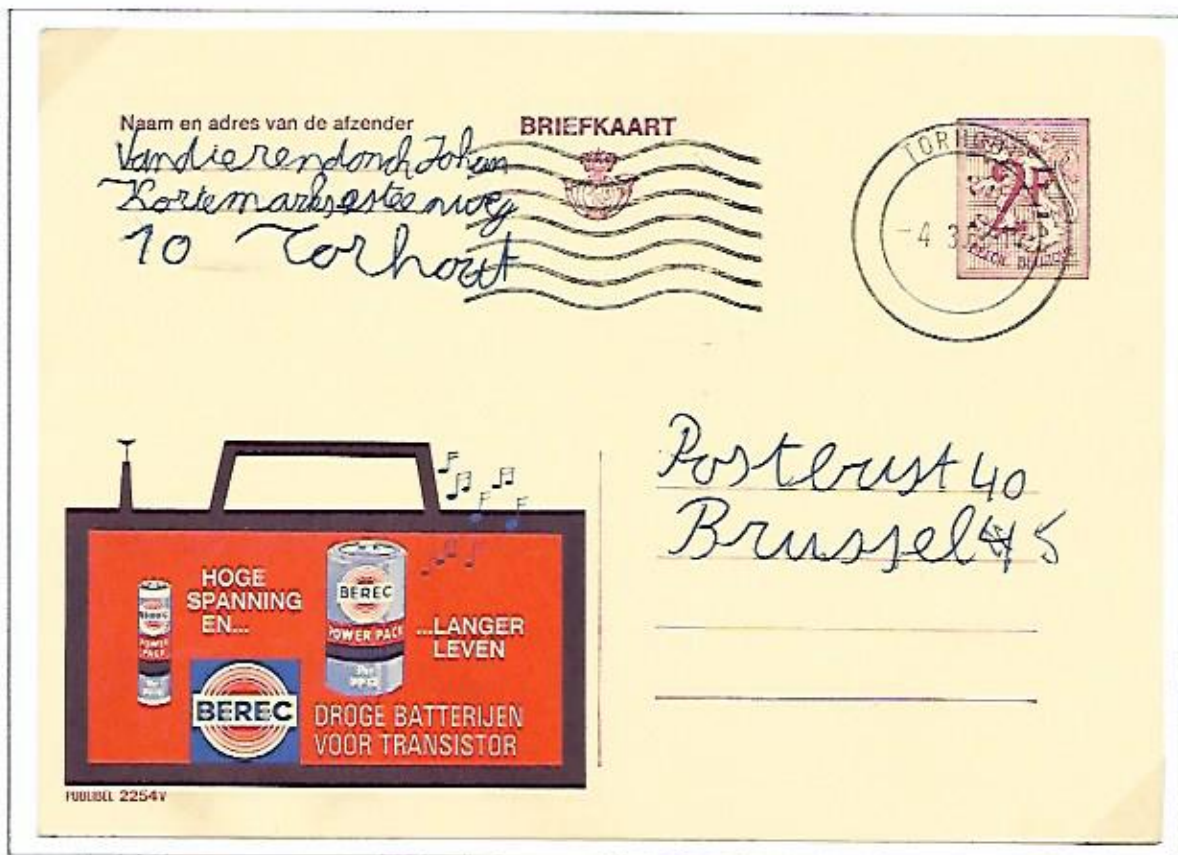 Naam en adres van de afzender
BRIEFKAART
Vandierendonck Johan
Kortemarksesteenweg
10 Torhout
TORHOUT
2F
-4 3
Postbust 40
Brussel 4 5
HOGE
SPANNING
EN...
BEREC
POWER PACK
BEREC
POWER
PACK
...LANGER
LEVEN
BEREC
DROGE BATTERIJEN
VOOR TRANSISTOR
PUBLIBEL 2254V